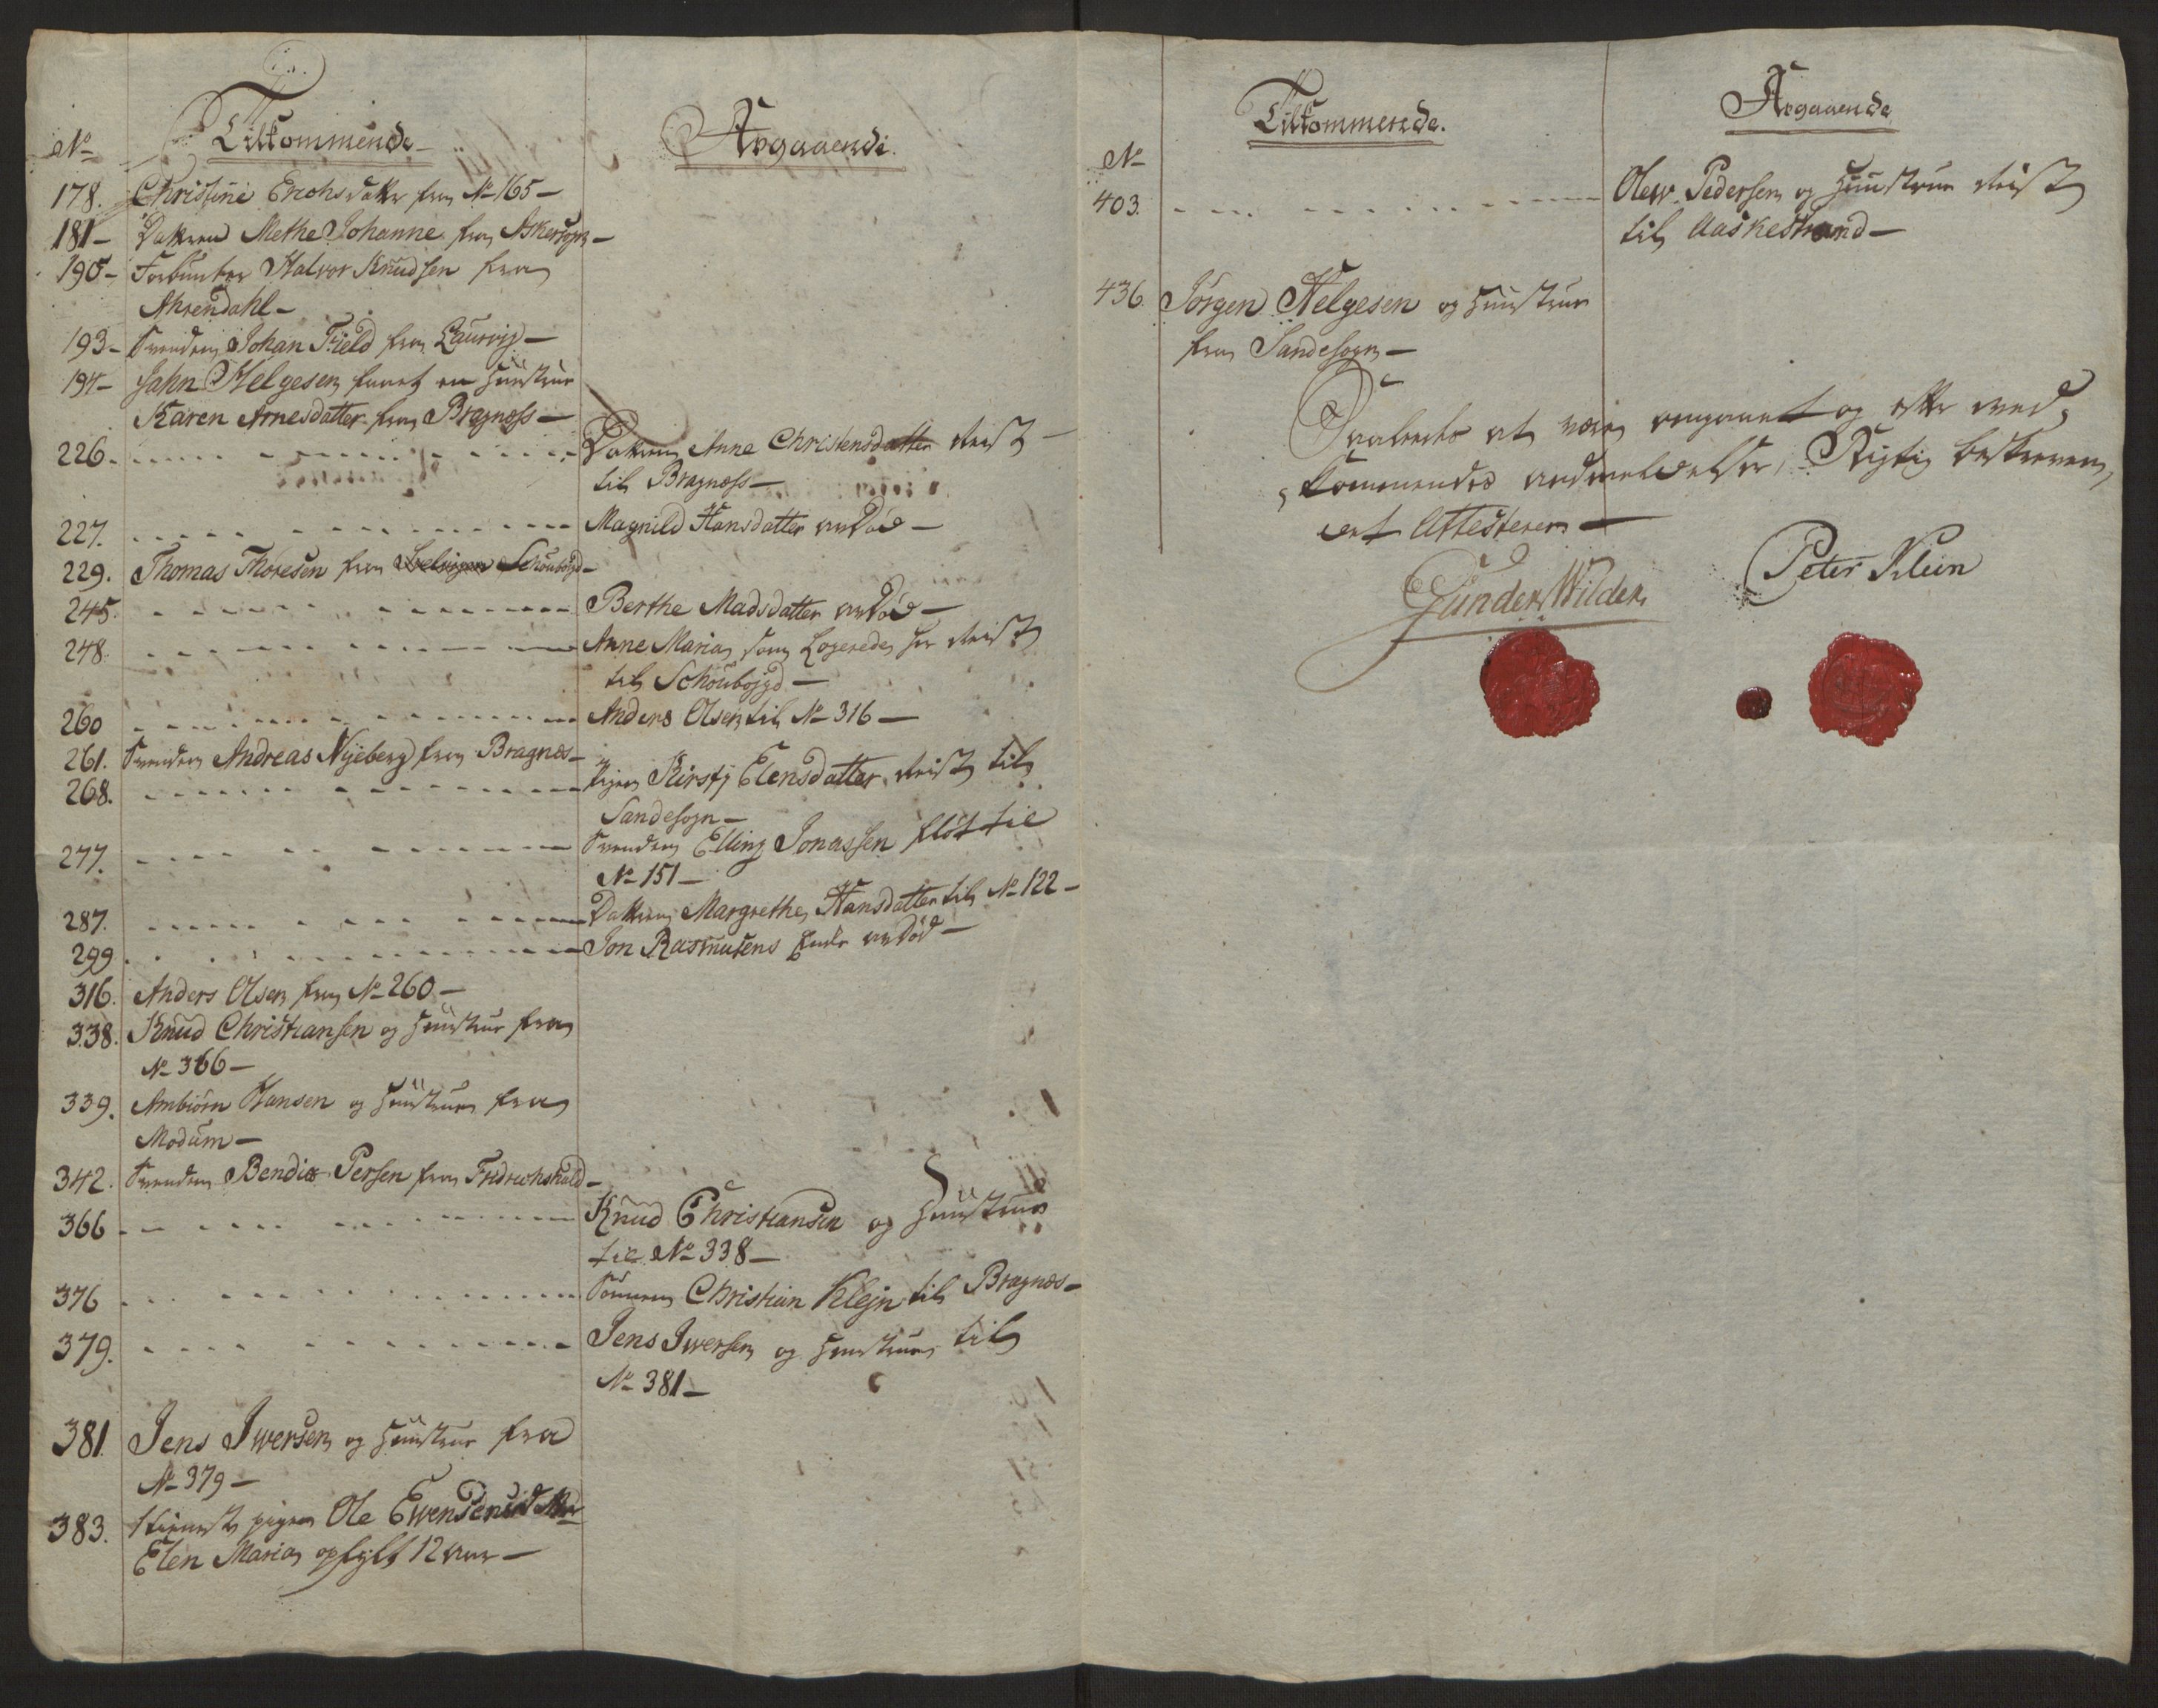 No Tilkommende Afgaaende
178. Christine Erichsdatter fra No 165 –
181 – Datteren Methe Johanne fra Askersogn –
190 – Forbunter Halvor Knudsen fra
Ahrendahl –
193 – Svenden Johan Field fra Laurvig –
194 – Jahn Helgesen faaet en Hustrue
Karen Arnesdatter fra Bragnæss –
226. Datteren Anne Christensdatter reist –
til Bragnæss –
227. Magnild Hansdatter ved Død –
229. Thomas Thoresen fra Schoubögd –
245. Berthe Madsdatter ved Död –
248. Anne Maria som Logerede her reist
til Schoubojgd –
260 Anders Olsen til No 316 –
261. Svenden Andreas Nyeberg fra Bragnæs –
268. Pigen Kirstj Elensdatter reist til
Sandesogn –
277. Svenden Elling Jonassen fløt til
No 151 –
287. Datteren Margrethe Hansdatter til No 122 –
299 Jon Rasmusens Enke ved Död –
316. Anders Olsen fra No 260 –
338. Knud Christiansen og Huustrue fra
No 366 –
339. Ambiörn Hansen og Huustrue fra
Modum –
342. Svenden Bendix Persen fra Fridrichshald –
366 Knud Christiansen og Huustrue
til No 338 –
376 Sönnen Christian Klejn til Bragnæs –
379. Jens Iwersen og Huustrue til
No 381 –
381. Jens Iwersen og Huustrue fra
No 379 –
383. tienst pigen Ole Ewensens datter
Elen Maria opfylt 12 aar –
No Tilkommende. Afgaaende
403. Olew Pedersen og Huustrue reist
til Aaskestrand –
436. Jörgen Helgesen og Huustrue
fra Sandesogn –
Saaledes at være omgaaet og efter ved-
kommendes andmeldelser, Rigtig beskreven,
det Attesterer –
Gunder Wilder Peter Klein